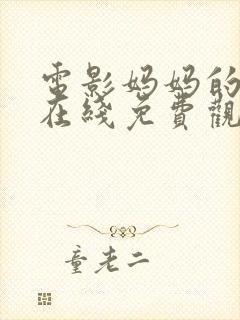 電影妈妈的
在綫免費觀
童老二